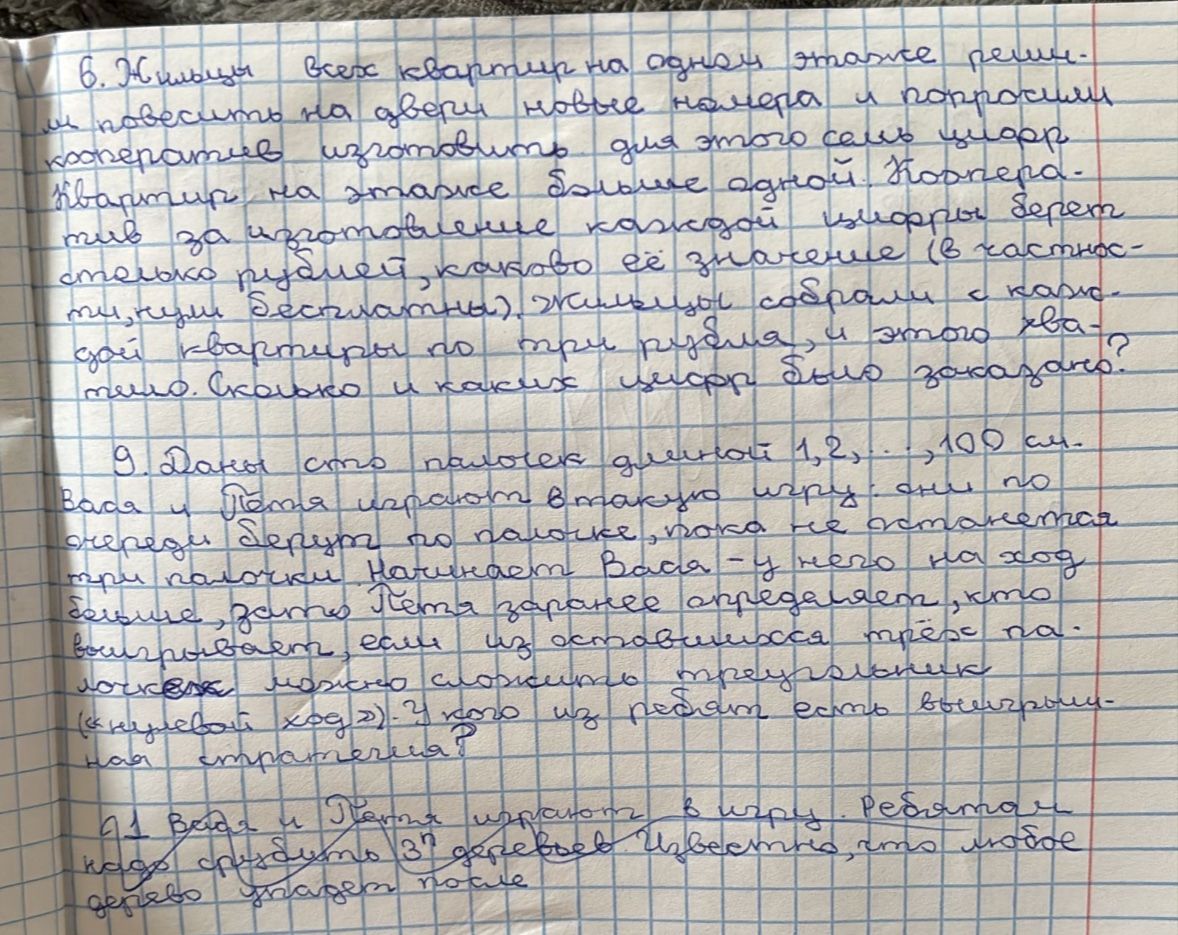 6. Жильцы всех квартир на одном этаже реши-
ли повесить на двери новые номера и попросили
кооператив изготовить для этого семь цифр
Квартир на этаже больше одной. Коопера-
тив за изготовление каждой цифры берет
столько рублей, каково её значение (в частнос-
ти, нули бесплатны). Жильцы собрали с каж-
дой квартиры по три рубля, и этого хва-
тило. Сколько и каких цифр было заказано?
9. Даны сто палочек длиной 1, 2, ..., 100 см.
Вася и Петя играют в такую игру: они по
очереди берут по палочке, пока не останется
три палочки. Начинает Вася - у него на ход
больше, зато Петя заранее определяет, кто
выигрывает, если из оставшихся трёх па-
лочек можно сложить треугольник
(«нулевой ход»). У кого из ребят есть выигрыш-
ная стратегия?
91 Вася и Петя играют в игру. Ребятам
надо срубить 3ⁿ деревьев Известно, что любое
дерево упадет после